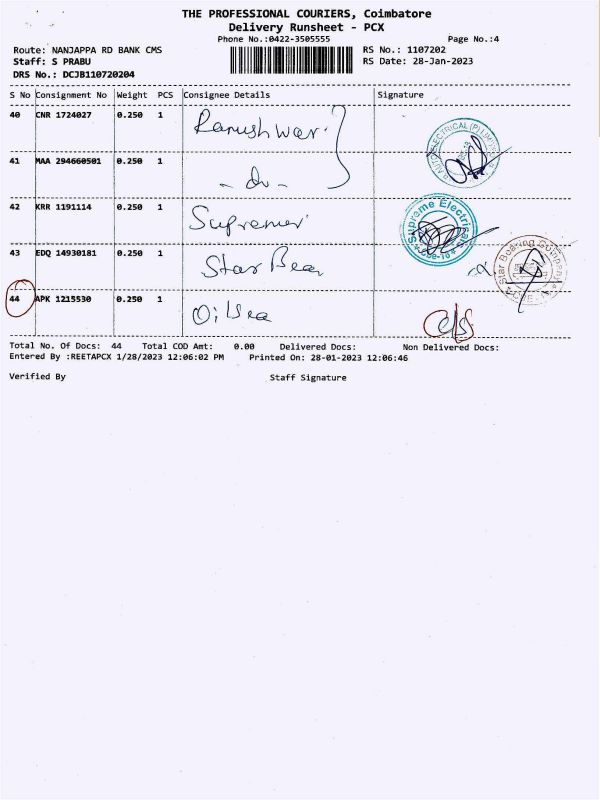 THE PROFESSIONAL COURIERS, Coimbatore
Delivery Runsheet - PCX
Phone No.:0422-3505555 Page No.:4
Route: NANJAPPA RD BANK CMS RS No.: 1107202
Staff: S PRABU RS Date: 28-Jan-2023
DRS No.: DCJB110720204
S No Consignment No Weight PCS Consignee Details Signature
40 CNR 1724027 0.250 1
41 MAA 294660501 0.250 1 - do -
42 KRR 1191114 0.250 1 Supreme Electricals
43 EDQ 14930181 0.250 1 Star Bear Star Bearing
44 APK 1215530 0.250 1 Oilsea
Total No. Of Docs: 44 Total COD Amt: 0.00 Delivered Docs: Non Delivered Docs:
Entered By :REETAPCX 1/28/2023 12:06:02 PM Printed On: 28-01-2023 12:06:46
Verified By Staff Signature